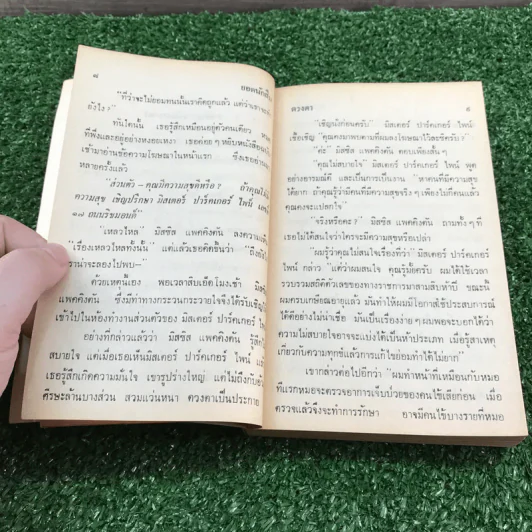 ๘
ยอดนักสืบ
"ที่ว่าจะไม่ยอมทนนั้นเราคิดถูกแล้ว แต่ว่าเราจะ
ยังไง?"
ทันใดนั้น เธอรู้สึกเหมือนอยู่ตัวคนเดียว
ที่พึ่งและอยู่อย่างหงอยเหงา เธอค่อย ๆ หยิบหนังสือ
เข้ามาอ่านข้อความโฆษณาในหน้าแรก ซึ่งเธออ่าน
หลายครั้งแล้ว
"ส่วนตัว – คุณมีความสุขดีหรือ? ถ้าคุณไม่มี
ความสุข เชิญปรึกษา มิสเตอร์ ปาร์คเกอร์ ไพน์
๑๗ ถนนริชมอนด์"
"เหลวไหล" มิสซิส แพคคิงตัน ลงความ
"เรื่องเหลวไหลทั้งนั้น" แต่แล้วเธอคิดขึ้นว่า "ถึง
น่าจะลองไปพบ—"
ด้วยเหตุนี้เอง พอเวลาสิบเอ็ดโมงเช้า
แพคคิงตัน ซึ่งมีท่าทางกระวนกระวายใจจึงได้รับเชิญ
เข้าไปในห้องทำงานส่วนตัวของ มิสเตอร์ ปาร์คเกอร์
อย่างที่กล่าวแล้วว่า มิสซิส แพคคิงตัน รู้สึก
สบายใจ แต่เมื่อเธอเห็นมิสเตอร์ ปาร์คเกอร์ ไพน์
เธอรู้สึกเกิดความมั่นใจ เขารูปร่างใหญ่ แต่ไม่ถึงกับ
ศีรษะล้านบางส่วน สวมแว่นหนา ดวงตาเป็นประกาย
ดวงตา
๙
"เชิญนั่งก่อนครับ" มิสเตอร์ ปาร์คเกอร์ ไพน์
เชื้อเชิญ "คุณคงมาพบตามที่ผมลงโฆษณาไว้ละซีครับ?"
"ค่ะ" มิสซิส แพคคิงตัน ตอบเพียงสั้น ๆ
"คุณไม่สบายใจ" มิสเตอร์ ปาร์คเกอร์ ไพน์ พูด
อย่างอารมณ์ดี และเป็นการเป็นงาน "หาคนที่มีความสุข
ได้ยาก ถ้าคุณรู้ว่ามีคนที่มีความสุขจริง ๆ เพียงไม่กี่คนแล้ว
คุณคงจะแปลกใจ"
"จริงหรือคะ?" มิสซิส แพคคิงตัน ถามทั้ง ๆ ที่
เธอไม่ได้สนใจว่าใครจะมีความสุขหรือเปล่า
"ผมรู้ว่าคุณไม่สนใจเรื่องที่ว่า" มิสเตอร์ ปาร์คเกอร์
ไพน์ กล่าว "แต่ว่าผมสนใจ คุณรู้มั้ยครับ ผมได้ใช้เวลา
รวบรวมสถิติตัวเลขของทางราชการมาสามสิบห้าปี ขณะนี้
ผมครบเกษียณอายุแล้ว มันทำให้ผมมีโอกาสใช้ประสบการณ์
ได้ดีอย่างไม่น่าเชื่อ มันเป็นเรื่องง่าย ๆ คุณพอจะบอกได้ว่า
ความไม่สบายใจอาจจะแบ่งได้เป็นห้าประเภท เมื่อรู้สาเหตุ
เกี่ยวกับความทุกข์แล้วการแก้ไขย่อมทำได้ไม่ยาก"
เขากล่าวต่อไปอีกว่า "ผมทำหน้าที่เหมือนกับหมอ
ที่แรกหมอจะตรวจอาการเจ็บป่วยของคนไข้เสียก่อน เมื่อ
ตรวจแล้วจึงจะทำการรักษา อาจมีคนไข้บางรายที่หมอ